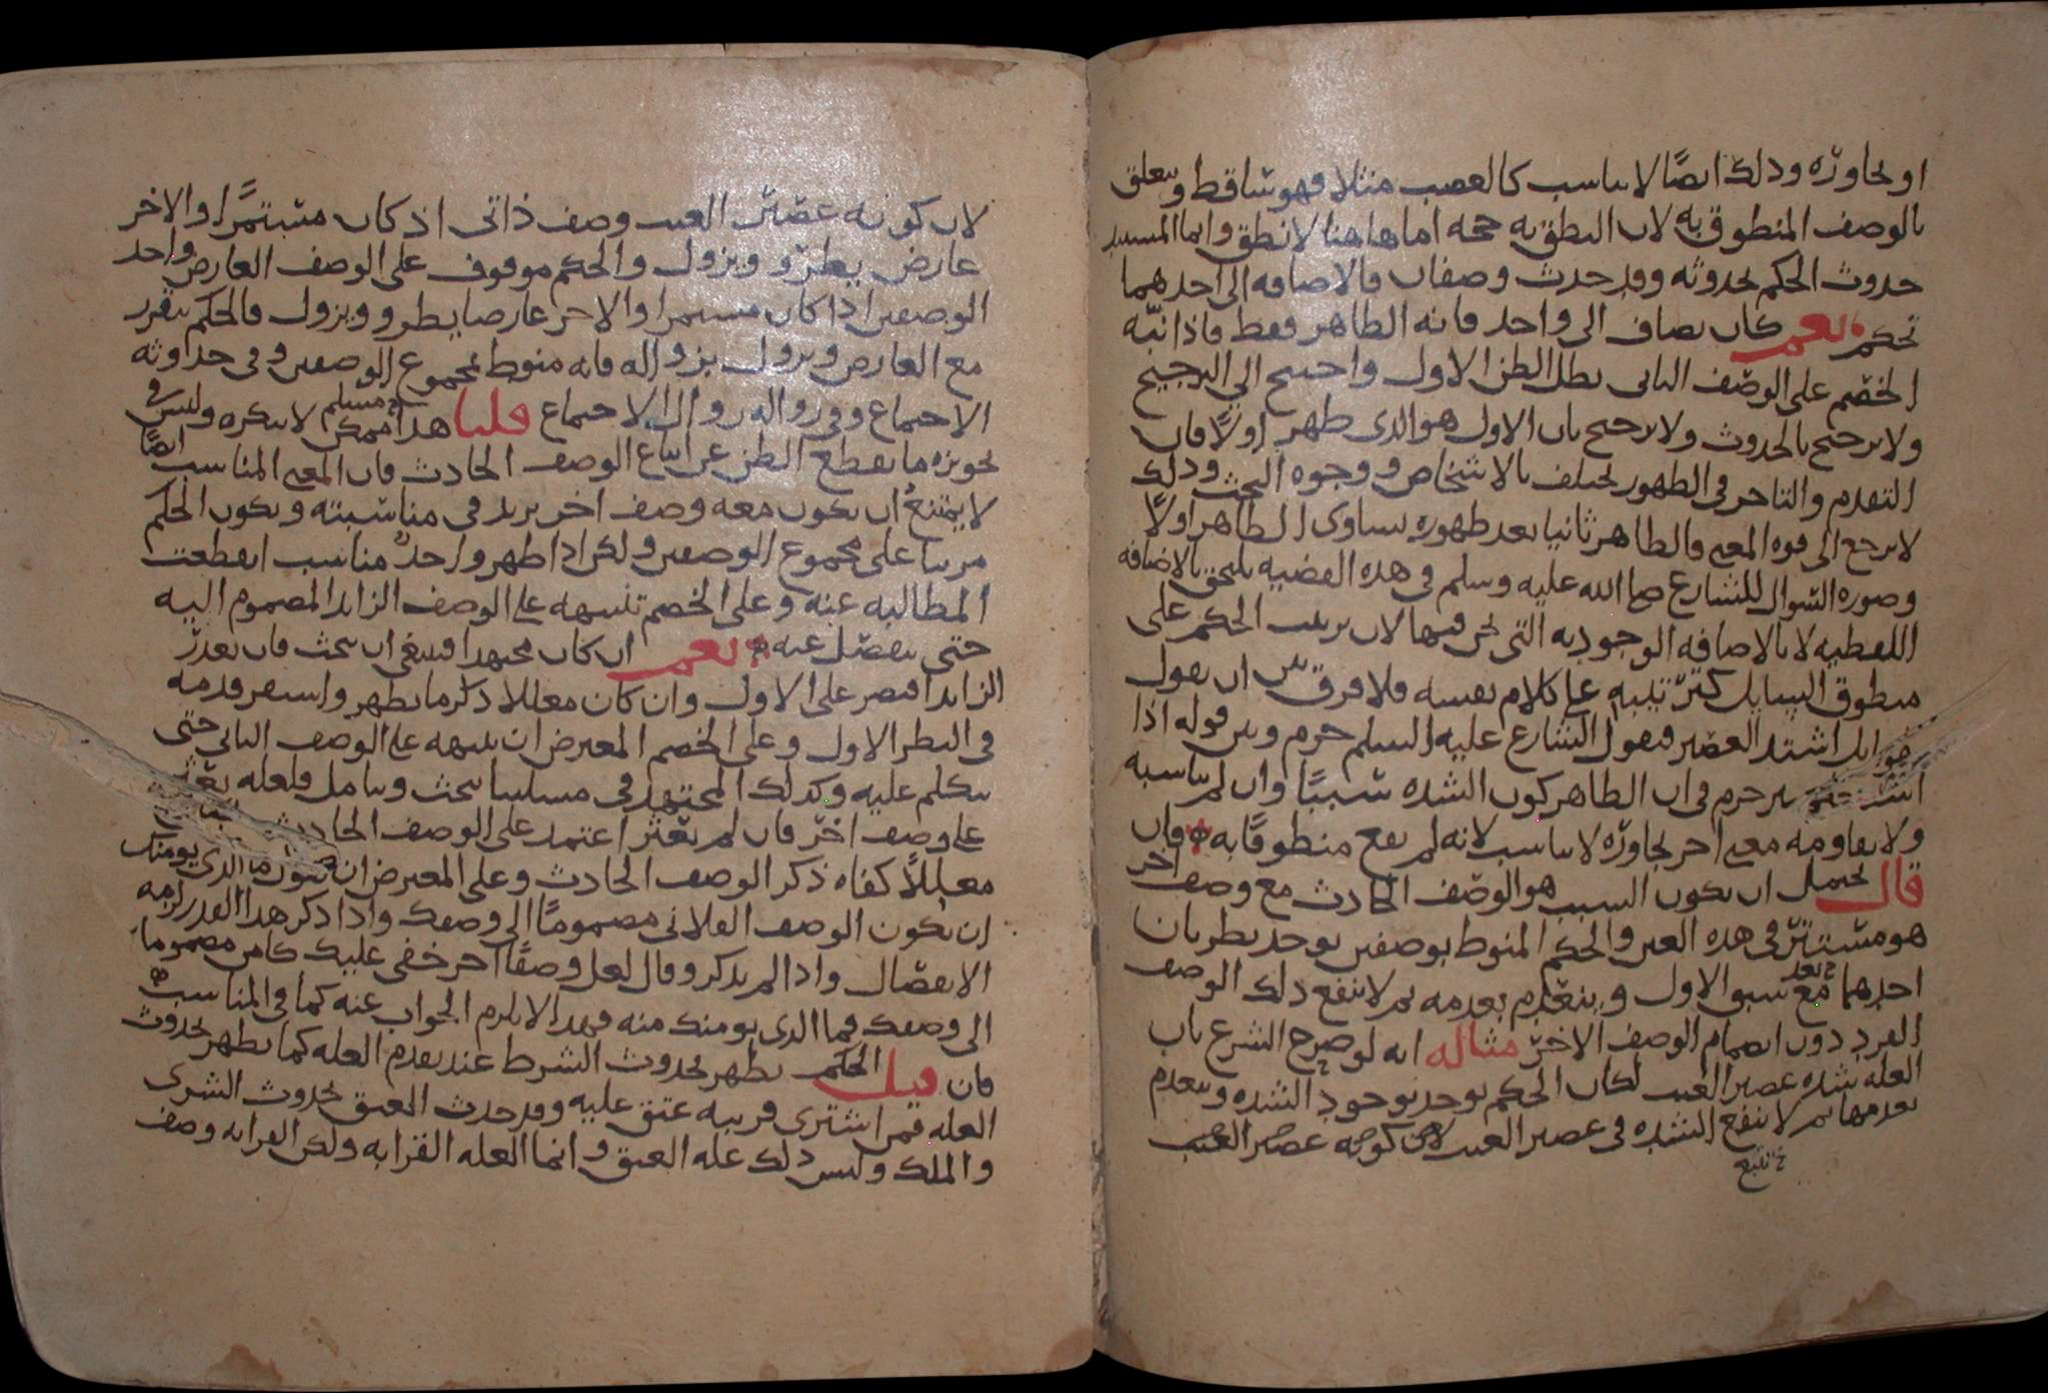 او تجاوزه وذلك ايضًا لا يناسب كالغصب مثلا فهو ساقط ويتعلق
بالوصف المنطوق به لان النطق به حجه اما هاهنا لا نطق وانما المستند
حدوث الحكم بحدوثه وقد حدث وصفان فالاضافه الى احدهما
تحكم نعم كان يضاف الى واحد فانه الظاهر فقط فاذا نبّه
الخصم على الوصف الثانى بطل الظن الاول واحتيج الى الترجيح
ولا يرجح بالحدوث ولا يرجح بان الاول هو الذى ظهر اولًا فان
التقدم والتاخر فى الظهور يختلف بالاشخاص ووجوه البحث وذلك
لا يرجع الى قوه المعنى فالظاهر ثانيا بعد ظهوره يساوى الظاهر اولًا
وصوره السوال للشارع صلى الله عليه وسلم فى هذه القضيه يلتحق بالاضافه
اللفظيه لا بالاضافه الوجوديه التى نحن فيها لان ترتيب الحكم على
منطوق السايل كترتيبه على كلام نفسه فلا فرق بين ان يقول
سايل اشتد العصير فيقول الشارع عليه السلم حرم وبين قوله اذا
اشتد حرم فى ان الظاهر كون الشده سببًا وان لم يناسبه
ولا يقاومه معنى اخر تجاوزه لا يناسب لانه لم يقع منطوقًا به فان
قال يحتمل ان يكون السبب هو الوصف الحادث مع وصف اخر
هو مستتر فى هذه العين والحكم المنوط بوصفين يوجد بطريان
احدهما مع بعد سبق الاول وينعدم بعدمه ثم لا ينفع ذلك الوصف
الفرد دون انضمام الوصف الاخر مثاله انه لو صرح الشرع بان
العله شده عصير العنب لكان الحكم يوجد بوجود الشده وينعدم
بعدمها ثم لا ينفع الشده فى عصير العنب لان كونه عصير العنب
لان كونه عصير العنب وصف ذاتى اذ كان مستمرًا والاخر
عارض يطرو ويزول والحكم موقوف على الوصف العارض واحد
الوصفين اذا كان مستمرا والاخر عارضا يطرو ويزول فالحكم يتقرر
مع العارض ويزول بزواله فانه منوط بمجموع الوصفين وفى حدوثه
الاجتماع وفى زواله زوال الاجتماع قلنا هذا ممكن مسلم لا ننكره وليس فى
تجويزه ما يقطع الظن عن اتباع الوصف الحادث فان المعنى المناسب ايضًا
لا يمتنع ان يكون معه وصف اخر يزيد فى مناسبته ويكون الحكم
مرتبا على مجموع الوصفين ولكن اذا ظهر واحدٌ مناسب انقطعت
المطالبه عنه وعلى الخصم تنبيهه على الوصف الزايد المضموم اليه
حتى ينفصل عنه نعم ان كان مجتهدا فينبغى ان يبحث فان تعذر
الزايد اقتصر على الاول وان كان معللا ذكر ما يظهر واستقر قدمه
فى النظر الاول وعلى الخصم المعترض ان ينبهه على الوصف الثانى حتى
يتكلم عليه وكذلك المجتهد فى مسلتنا يبحث ويتامل فلعله يعثر
على وصف اخر فان لم يعثر اعتمد على الوصف الحادث
معللًا كفاه ذكر الوصف الحادث وعلى المعترض ان يقول ما الذى يومنك
ان يكون الوصف الفلانى مضمومًا الى وصفك واذا ذكر هذا القدر لزمه
الانفصال واذا لم يذكر وقال لعل وصفًا اخر خفى عليك كامن مضموما
الى وصفك فما الذى يومنك منه فهذا لا يلزم الجواب عنه كما فى المناسب
فان قيل الحكم يظهر بحدوث الشرط عند تقدم العله كما يظهر بحدوث
العله فمن اشترى قريبه عتق عليه وقد حدث العتق بحدوث الشرى
والملك وليس ذلك عله العتق وانما العله القرابه ولكن القرابه وصف